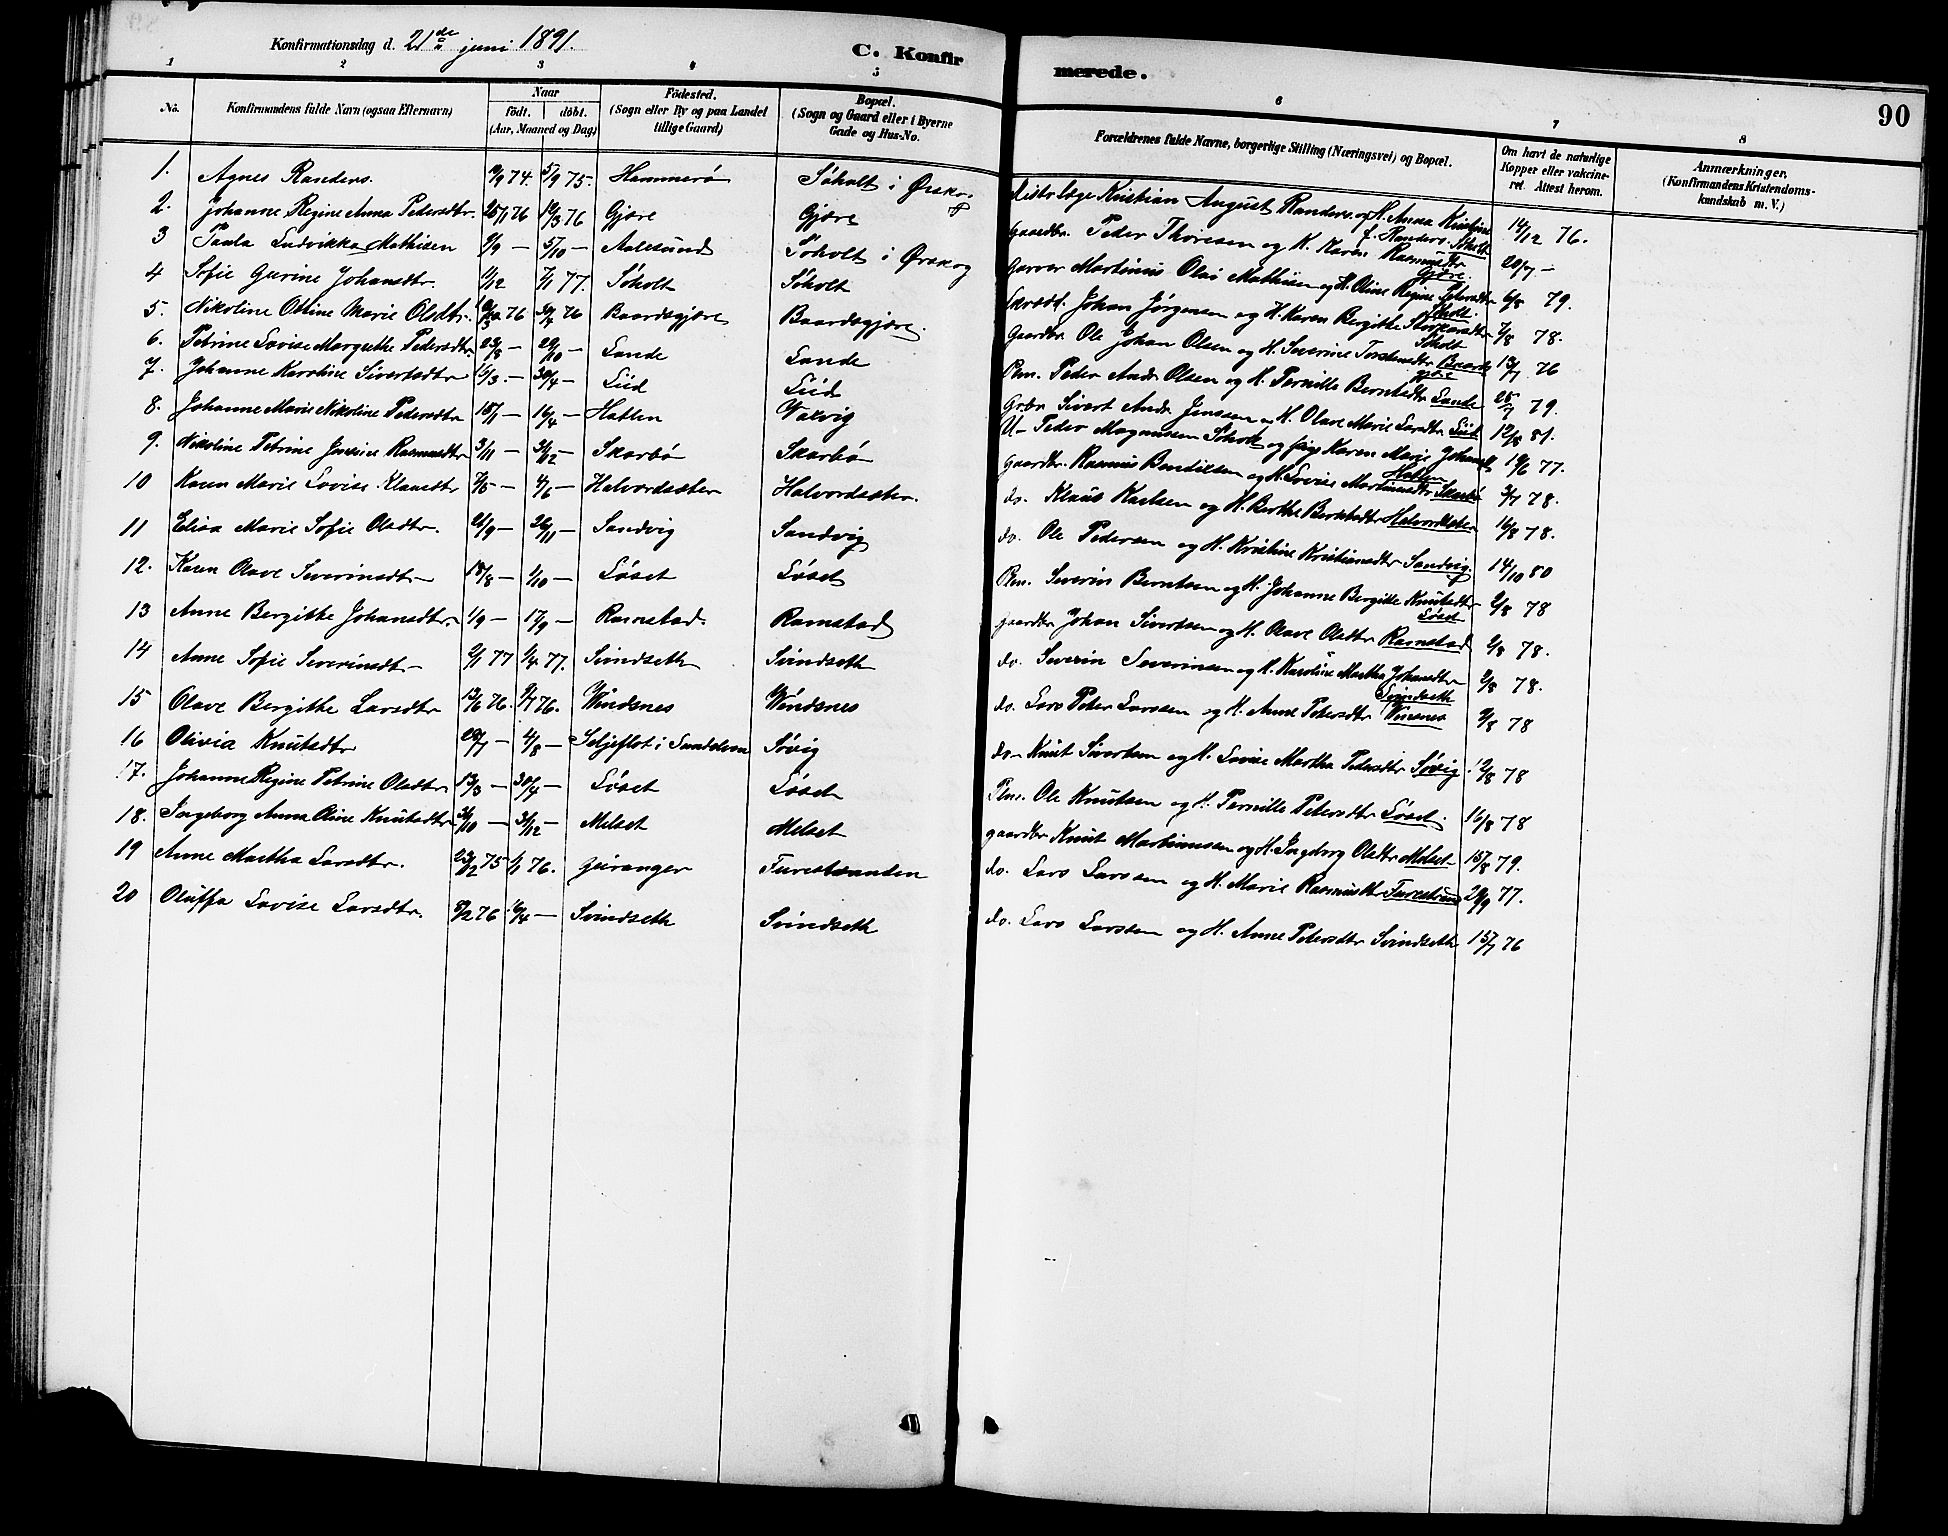 Konfirmationsdag d. 21de juni 1891.
C. Konfirmerede.
90
1 2 3 4 5 6 7 8
No. Konfirmandens fulde Navn (ogsaa Efternavn) Naar födt. döbt. (Aar, Maaned og Dag) Födested. (Sogn eller By og paa Landet tillige Gaard) Bopæl. (Sogn og Gaard eller i Byerne Gade og Hus-No. Forældrenes fulde Navne, borgerlige Stilling (Næringsvei) og Bopæl. Om havt de naturlige Kopper eller vakcineret. Attest herom. Anmærkninger. (Konfirmandens Kristendomskundskab m. V.)
1. Agnes Randers. 74. 5/9 75. Hammerö Söholt i Ørskog Kristian August Randers og H. Anna Kristine f. Randers. Söholt 14/12 76.
2. Johanne Regine Anna Pedersdtr. 25/1 76 19/3 76 Gjöre Gjöre gaardbr. Peder Thoresen og H. Karen Rasmusdtr Gjöre. 20/7 —
3 Paula Ludvikka Mathisen 9/9 — 5/10 — Aalesund Söholt i Ørskog Garver Martinus Olai Mathisen og H. Oline Regine Petersdtr Söholt. 6/8 79.
4 Sofie Gurine Johansdtr. 1/12 7/1 77. Söholt Söholt Skrædd. Johan Jørgensen og H. Karen Bergitte Söholt 7/8 78.
5. Nikoline Ottine Marie Olsdtr. 76 30/4 76 Baardsgjøre Baardsgjøre. Gaardbr. Ole Johan Olsen og H. Severine Torstensdtr Baardsgjøre 13/7 76
6. Petrine Lovise Margrethe Pedersdtr 23/8 — 29/10 — Lande Lande Plm. Peder Andr. Olsen og H. Pernille Berntsdtr Lande 25/7 79.
7. Johanne Karoline Sivertsdtr 15/3. — 30/4 — Liid Liid Grbr Sivert Andr. Jenssen og H. Olave Marie Larsdtr Liid 12/8 81.
8. Johanne Marie Nikoline Pedersdtr 18/1 — 16/4 — Hatlen Valvig U— Peder Magnussen Søholt og pige Karen Marie Johansdt Hatlen 19/6 77.
9. Nikoline Petrine Jensine Rasmusdtr 3/11 — 31/12 — Skarbö Skarbö gaardbr. Rasmus Bendiksen og H. Lovise Martinusdtr Skarbö 3/7 78.
10 Karen Marie Lovise Klausdtr 7/5 — 4/6 — Halvordsæter Halvordsæter. do. Klaus Karlsen og H. Berthe Berntsdtr Halvordsæter 16/8 78.
11 Elisa Marie Sofie Olsdtr. 21/9 — 26/11 — Sandvig Sandvig do. Ole Pedersen og H. Kristine Kristiansdtr Sandvig. 14/10 80
12. Karen Olave Severinsdtr — 18/8 — 1/10 — Löset Löset Plm. Severin Berntsen og H. Johanne Bergitte Knutsdtr Löset 2/8 78
13 Anne Bergitte Johansdtr. 1/9 — 17/9 — Ramstad. Ramstad gaardbr Johan Sivertsen og H. Olave Olsdtr Ramstad 2/8 78.
14 Anne Sofie Severinsdtr — 2/1 77 1/4 77. Svindseth Svindseth do. Severin Severinsen og H. Karoline Martha Johansdtr Svindseth 2/8 78.
15 Olave Bergithe Larsdtr 13/6 76. 9/7 76. Vindsnes Vindsnes do. Lars Peter Larssen og H. Anne Petersdtr Vinsnes 9/8 78
16 Olivia Knutsdtr 29/7 — 4/8 — Seljeflot i Sundalen Søvig do — Knut Sivertsen og H. Lovise Martha Pedersdtr Søvig. 12/8 78
17. Johanne Regine Petrine Olsdtr 13/3 — 30/4 — Löset Löset Plm. Ole Knutsen og H. Pernille Petersdtr Löset. 16/8 78
18. Ingeborg Anna Oline Knutsdtr 31/10 — 31/12 — Melset Melset gaardbr Knut Martinussen og H. Ingeborg Olsdtr Melset 15/8 79.
19 Anne Martha Larsdtr. 23/12 75 1/1 76. Geiranger Furestranden do. Lars Larssen og H. Marie Rasmusdtr Furestrand 29/9 77.
20 Oluffa Lovise Larsdtr. 8/2 76 16/4 — Svindseth Svindseth do. Lars Larssen og H. Anne Petersdtr Svindseth 15/7 76